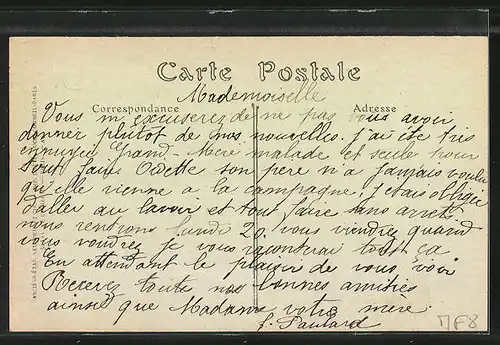 Carte Postale
Correspondance
Adresse
Mademoiselle
Vous m'excuserez de ne pas vous avoir
donner plutot de nos nouvelles. j'ai été très
ennuyer Grand-Mère malade et seule pour
tout faire Odette son père n'a jamais voulu
qu'elle vienne a la campagne. j'etais obligée
d'aller au lavoir et tout faire sans arret
nous rentrons lundi 20. vous viendrez quand
vous voudrez je vous raconterai tout ça
En attendant le plaisir de vous voir
Recevez toute nos bonnes amities
ainsie que Madame votre mère.
MF8